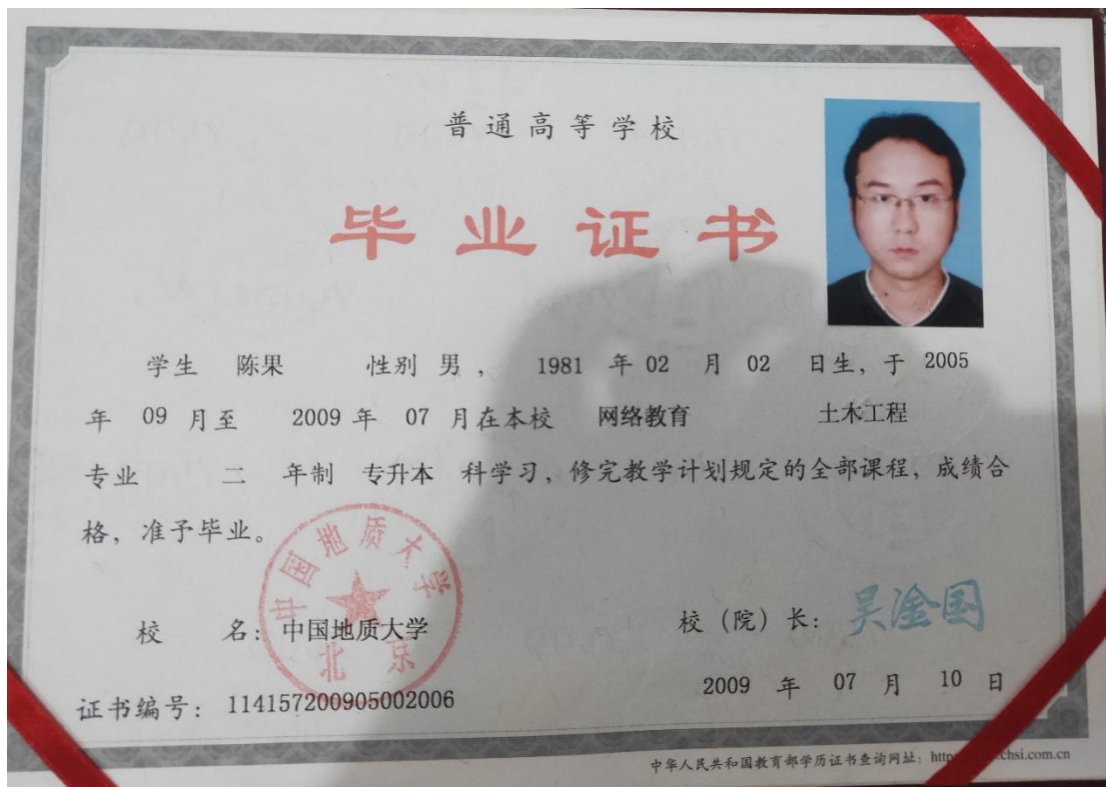 普通高等学校
毕业证书
学生 陈果 性别 男， 1981 年 02 月 02 日生，于 2005
年 09 月至 2009 年 07 月在本校 网络教育 土木工程
专业 二 年制 专升本 科学习，修完教学计划规定的全部课程，成绩合
格，准予毕业。
中国地质大学
北京
校 名：中国地质大学
校（院）长：吴淦国
证书编号：114157200905002006
2009 年 07 月 10 日
中华人民共和国教育部学历证书查询网址：http chsi.com.cn